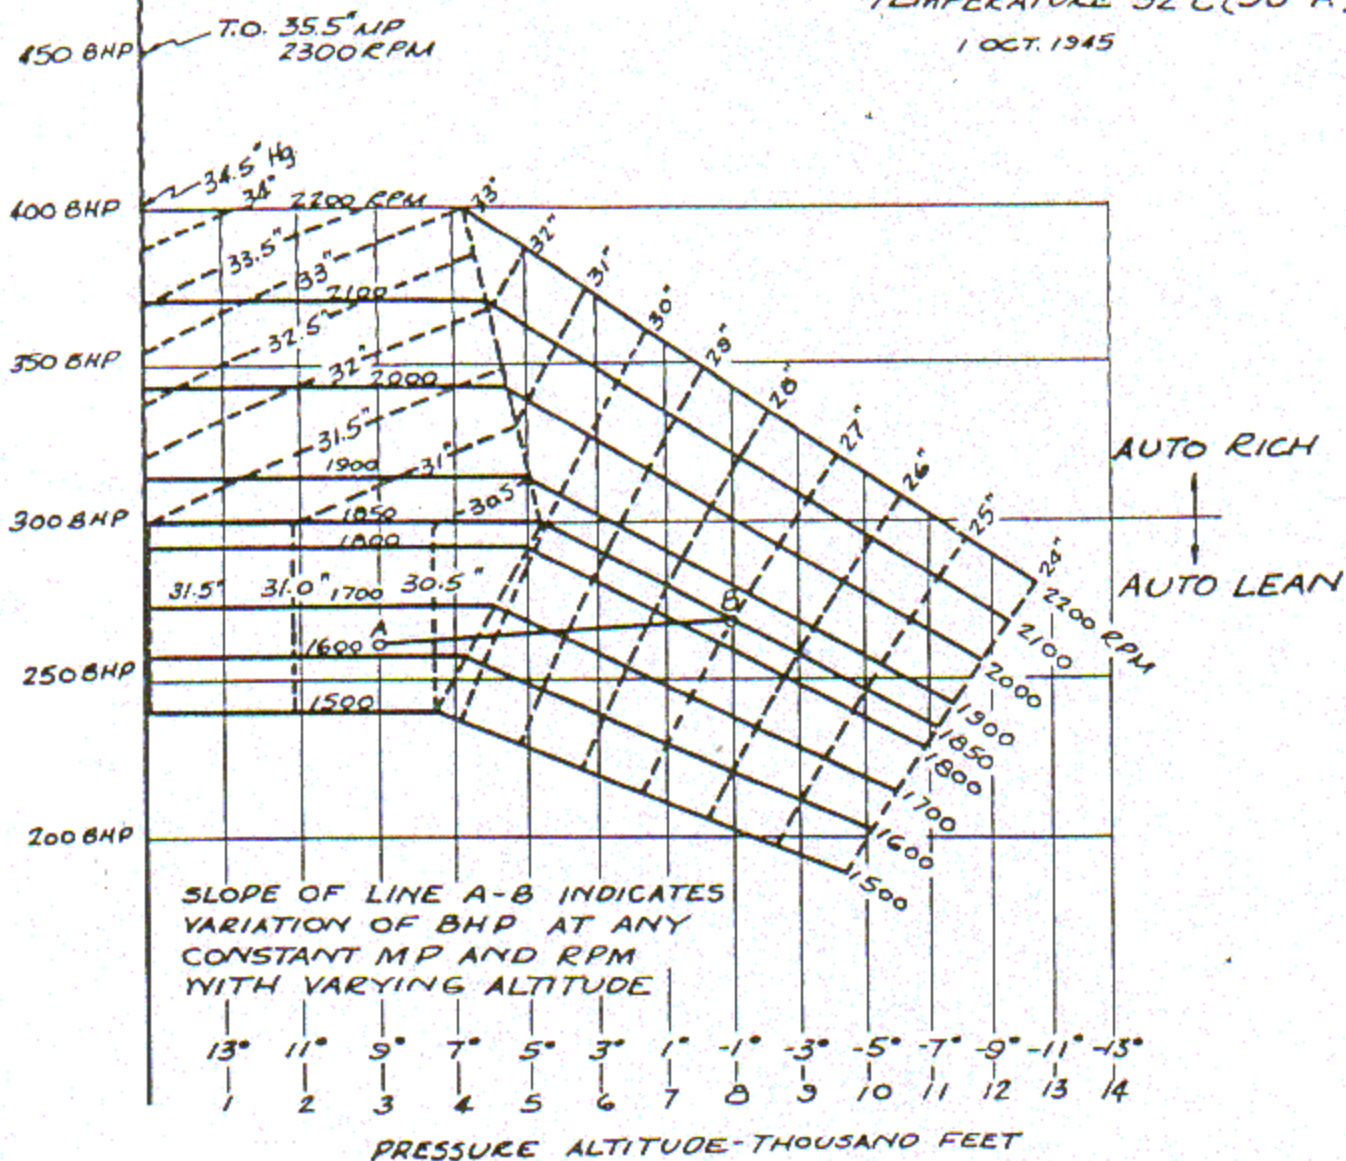 T.O. 35.5" MP
2300 RPM
1 OCT. 1945
450 BHP
400 BHP
350 BHP
300 BHP
250 BHP
200 BHP
34.5" Hg
34"
2200 RPM
33.5"
33"
2100
32.5"
32"
2000
31.5"
1900
31"
30.5
1850
1800
31.5"
31.0"
1700
30.5"
A
1600
1500
B
33"
32"
31"
30"
29"
28"
27"
26"
25"
24"
2200 RPM
2100
2000
1900
1850
1800
1700
1600
1500
AUTO RICH
AUTO LEAN
SLOPE OF LINE A-B INDICATES
VARIATION OF BHP AT ANY
CONSTANT MP AND RPM
WITH VARYING ALTITUDE
13° 11° 9° 7° 5° 3° 1° -1° -3° -5° -7° -9° -11° -13°
1 2 3 4 5 6 7 8 9 10 11 12 13 14
PRESSURE ALTITUDE-THOUSAND FEET